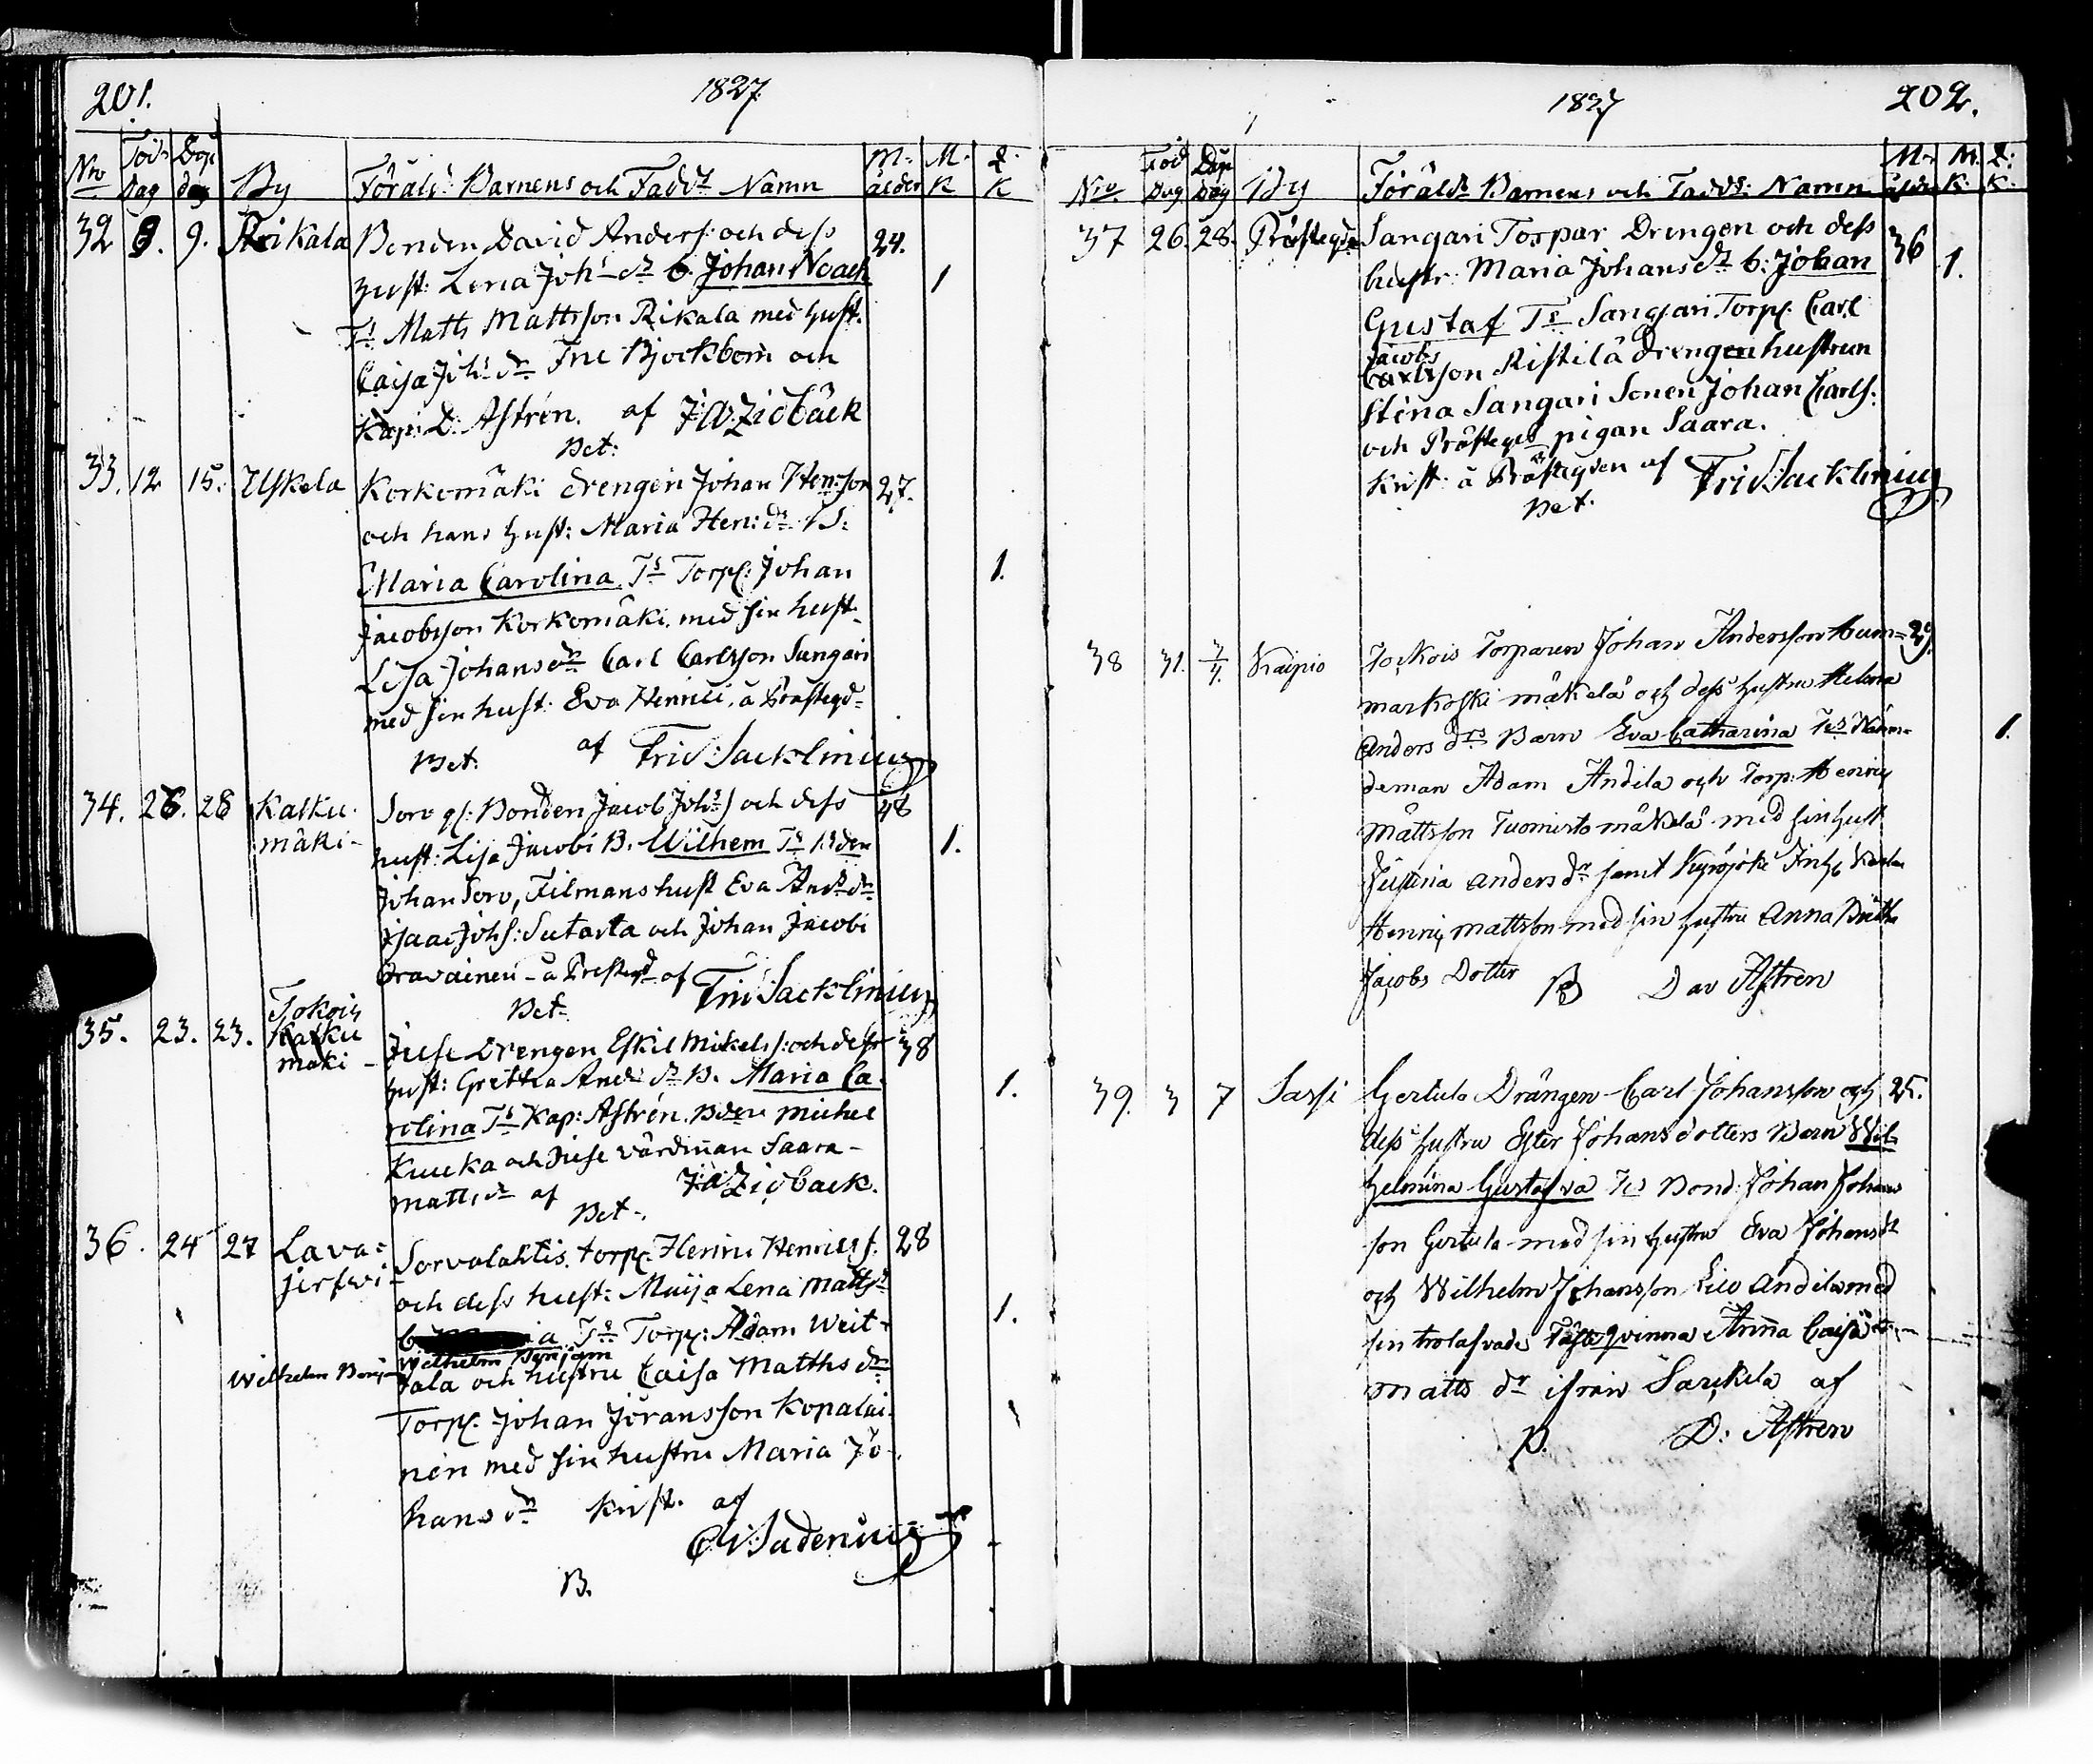 201. 1827.
Nro Föd: Dag Döp dag By Föräld: Barnens och Fadd: Namn M: ålder M. K Q. K
32 8. 9. Rikala Bonden David Anders: och dess 24.
hust: Lena Joh: dr b. Johan Noach 1
Ts Matts Mattsson Rikala med hust:
Caisa Joh: dr Fne Bjorkbom och
Kap: D. Astrén. af J:W:Zidbäck
Bet:
33. 12 15. Uskela Korkomäki drengen Johan Hen:son 27.
och hans hust: Maria Hen: dr B:
Maria Carolina. Ts Torp: Johan 1.
Jacobsson Korkomäki. med sin hust.
Lisa Johans dr Carl Carlsson Sungari
med sin hust. Eva Henrici. å Prästegd-
Bet. af Frid: Sacklinius
34. 26. 28 Kalku-
mäki- Sorv gl: Bonden Jacob Johs: och dess 48
hust: Lisa Jacobi B. Wilhem Ts Bden 1.
Johan Sorv, Filmans hust Eva And: dr
Isaac Johs: Sutarla och Johan Jacobi
Oravainen å Prestegd af Frid Sacklinius
Bet-
35. 23. 23. Jokois
Kalku
maki - Juse Drengen Eskil Mikels: och dess 38
hust: Gretha And: dr B. Maria Ca- 1.
rolina Ts Kap: Astrén. Bden Michel
Kuuka och Juse värdinnan Saara
Matts dr af J:W:Ziдback.
Bet-.
36. 24 27 Lava-
jerfwi- Sorvalahtis. torp: Henric Henrics s. 28
och dess hust: Maija Lena Matts:
b a Ts Torp: Adam Weit- 1.
Wilhelm Benj- Wilhelm Benjam
Jala och hustru Caisa Matths dr
Torp: Johan Jöransson Kopalai-
nen med sin hustru Maria Jo-
hans dr Krist. af
C W:Sadenius
B.
1827 202.
Nro. Föd Dag Döp Dag By Föräld: Barnens och Fadd: Namn M: ålder M. K. Q: K.
37 26. 28. Prästegd Sangari Torpar Drengen och dess 36
hustr: Maria Johans dr b: Johan 1.
Gustaf Ts Sangari Torp: Carl
Jacobs
Carlsson Ristilä drengen hustrun
Stina Sangari Sonen Johan Carls:
och Prästegds pigan Saara.
Krist: å Prästegden af Frid Sacklinius
Bet.
38 31. 3/4. Kaipio Jockois Torparen Johan Andersson Hum- 29.
markoski mäkelä och dess hustru Helena
Anders drs Barn Eva Catharina Tes Näm- 1.
deman Adam Andila och Torp: Henric
Mattsson Tuomisto mäkelä med sin hust
Justina Anders dr samt Kyröjoki
Henric Mattsson med sin hustru Anna Britha
Jacobs Dotter B Dav Astren
39. 3 7 Sassi Gertula Drängen Carl Johansson och 25.
dess hustru Ester Johans dotters Barn Wil-
helmina Gustafva Ts Bond. Johan Johans
son Gertula med sin hustru Eva Johans dr
och Wilhelm Johansson Andila med
sin trolofvade qvinna Anna Caisa
Matts dr ifrån Särkilä af
B. D: Astren